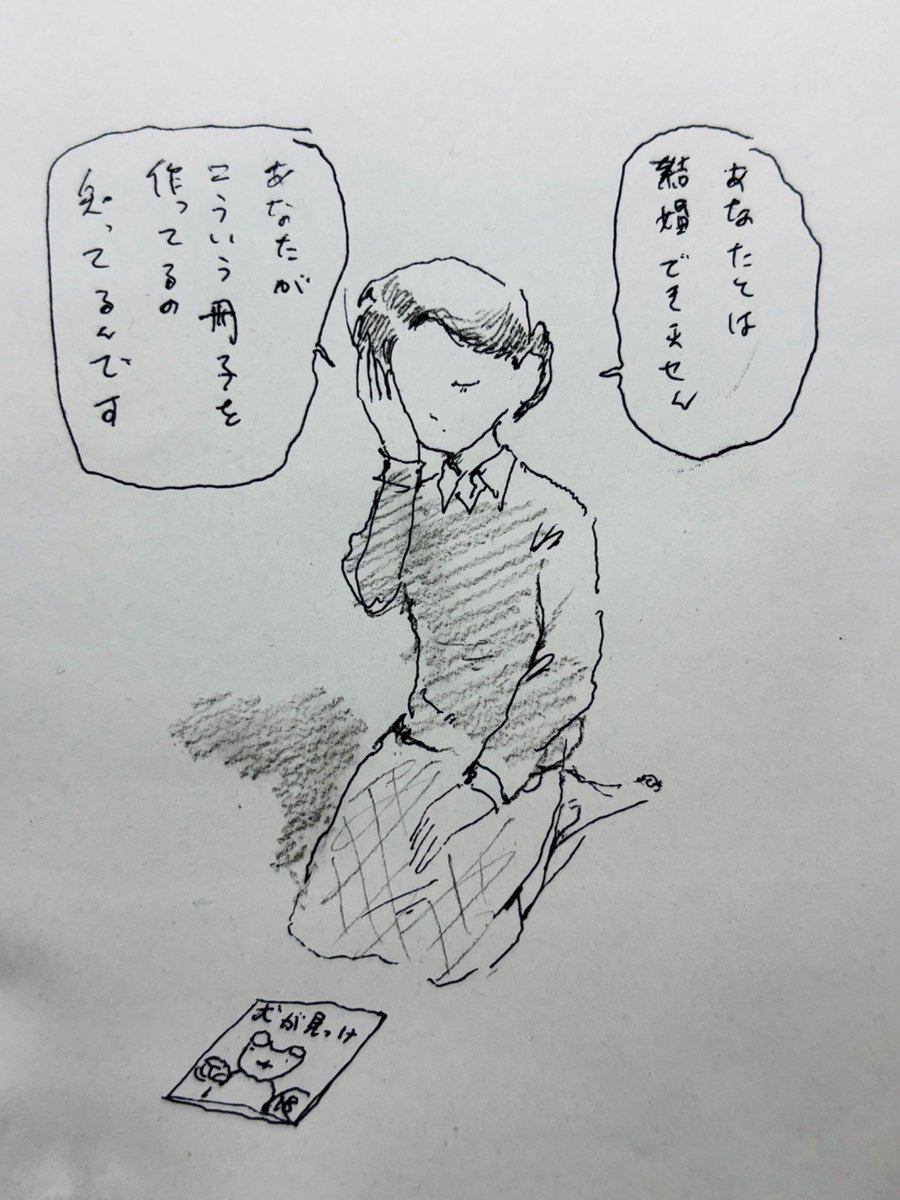 あなたとは
結婚できません
あなたが
こういう冊子を
作ってるの
知ってるんです
犬が見っけ
18